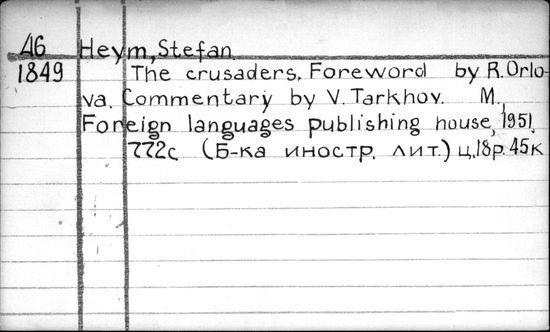 46 Heym, Stefan.
1849 The crusaders. Foreword by R. Orlo-
va. Commentary by V. Tarkhov. M.,
Foreign languages publishing house, 1951.
772с (Б-ка иностр. лит.) ц. 18р. 45к